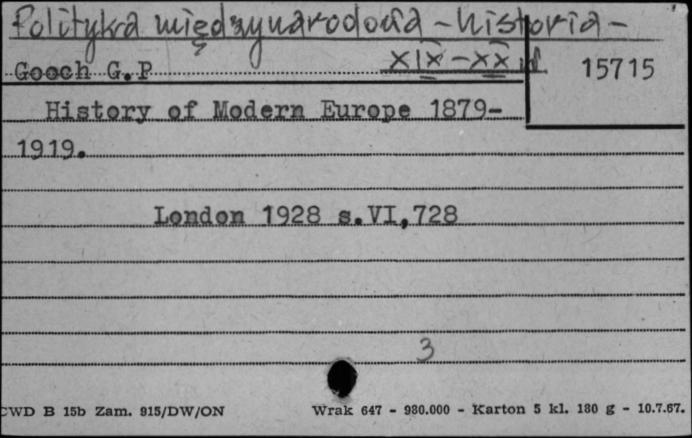 Polityka międzynarodowa - historia -
XIX - XX w
Gooch G.P
15715
History of Modern Europe 1879-
1919.
London 1928 s.VI,728
3
CWD B 15b Zam. 915/DW/ON Wrak 647 - 980.000 - Karton 5 kl. 180 g - 10.7.67.